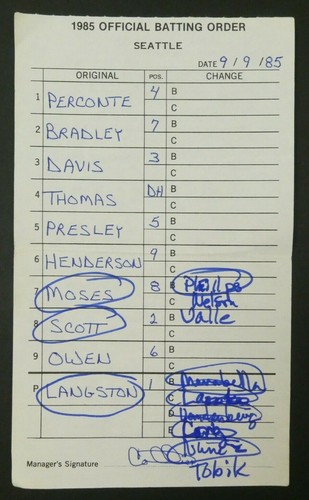 1985 OFFICIAL BATTING ORDER
SEATTLE
DATE 9/9/85
ORIGINAL POS. CHANGE
1 PERCONTE 4 B
C
2 BRADLEY 7 B
C
3 DAVIS 3 B
C
4 THOMAS DH B
C
5 PRESLEY 5 B
C
6 HENDERSON 9 B
C
7 MOSES 8 B Phelps
C Nelson
8 SCOTT 2 B Valle
C
9 OWEN 6 B
C
P LANGSTON 1 B
C
D Vandenberg
E
Tobik
Manager's Signature